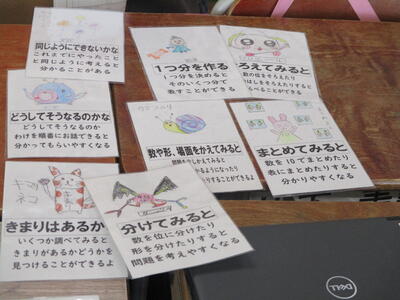 同じようにできないかな
これまでにやったこと
と同じように考えると
分かることがある
1つ分を作る
1つ分を決めると
そのいくつ分で
表すことができる
ろえてみると
数の位をそろえたり
どうしてそうなるのかな
どうしてそうなるのか
わけを順番にお話できると
分かってもらいやすくなる
数や形、場面をかえてみると
まとめてみると
数を10でまとめたり
表にまとめたりすると
分かりやすくなる
きまりはあるか
いくつか調べてみると
きまりがあるかどうかを
見つけることができるよ
分けてみると
数を位に分けたり
形を分けたりすると
問題を考えやすくなる
DELL